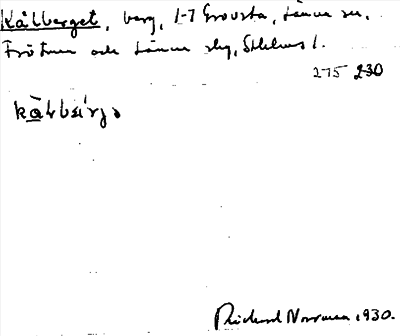 Kålberget, berg, 1-7 Grovsta, Länna sn,
Frötuna och Länna skg, Sthlms l.
275 230
Richard Norrman 1930.